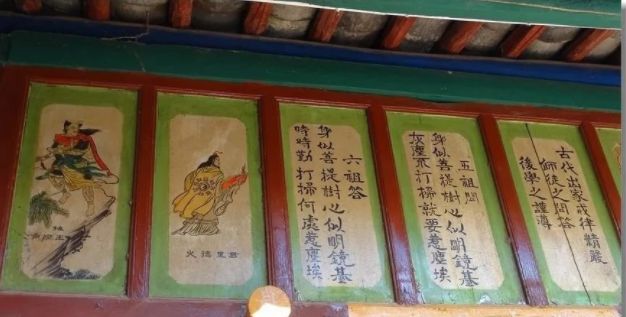 古代出家戒律精嚴
師徒之問答
後學之謹
五祖問
身似菩提樹心似明鏡基
灰塵不打掃就要惹塵埃
六祖答
身似菩提樹心似明鏡基
時時勤打掃何處惹塵埃
火德星君